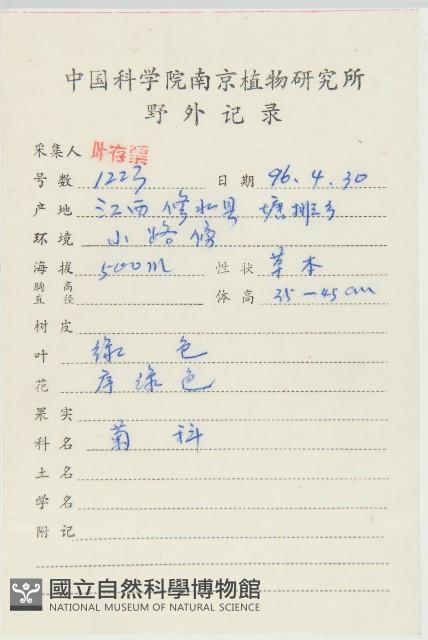 中国科学院南京植物研究所
野外记录
采集人 叶存粟
号数 1223 日期 96.4.30
产地 江西 修水县 塘排乡
环境 小路傍
海拔 500m 性状 草本
胸高直径 体高 35-45cm
树皮
叶 绿色
花 绿色
果实
科名 菊科
土名
学名
附记
國立自然科學博物館
NATIONAL MUSEUM OF NATURAL SCIENCE